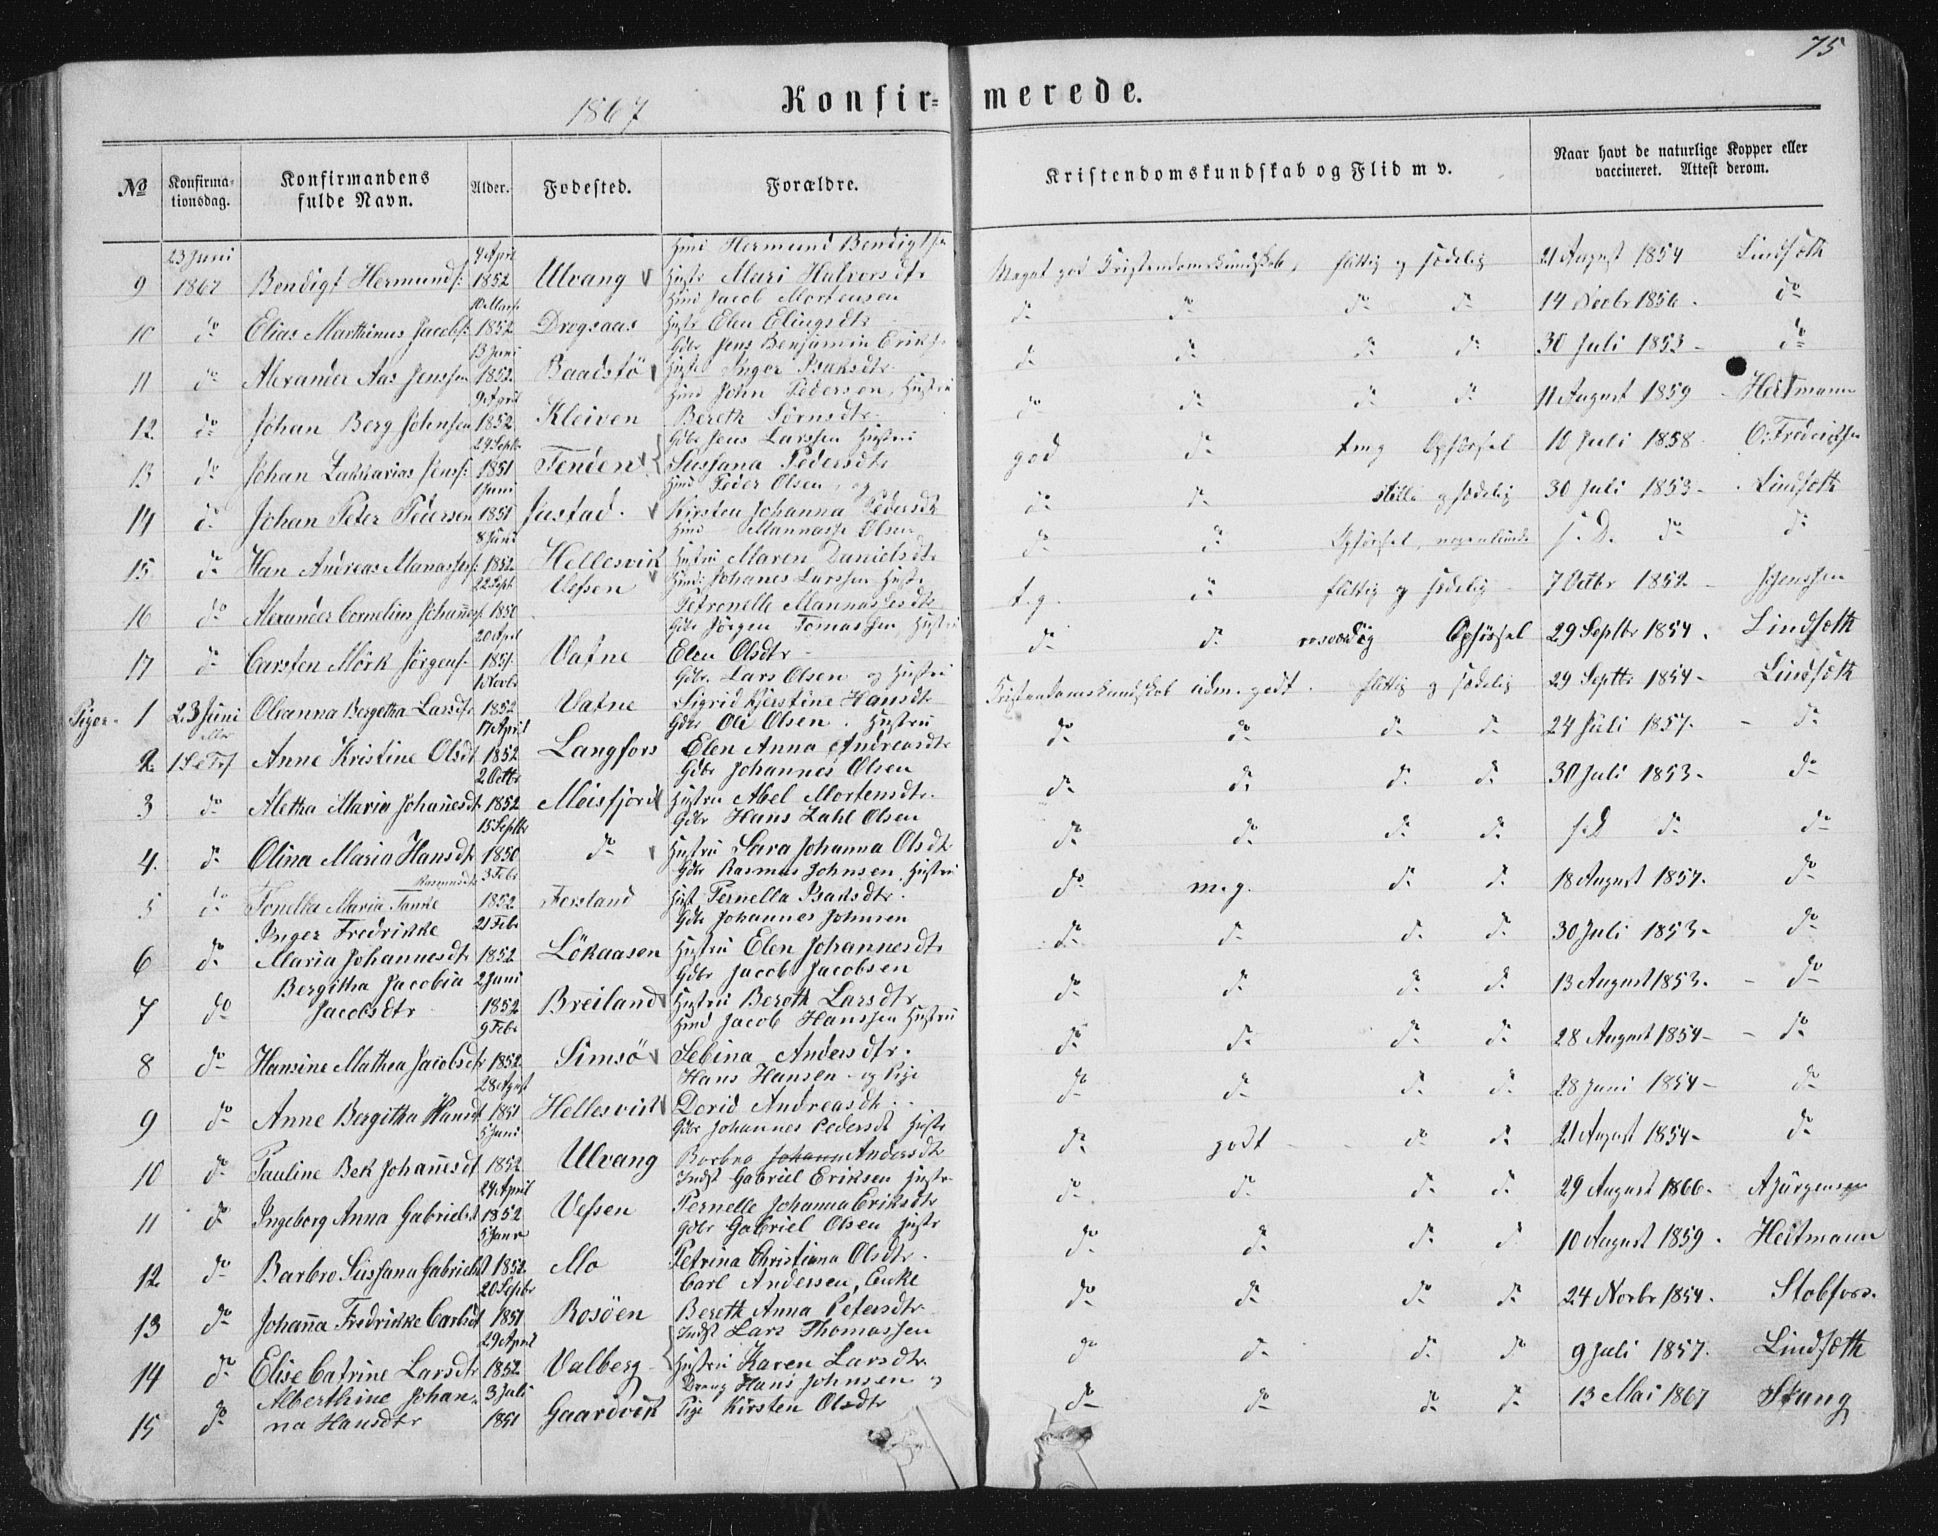 75
1867
Konfir= merede.
No
Konfirma-
tionsdag.
Konfirmandens
fulde Navn.
Alder.
Fødested.
Forældre.
Kristendomskundskab og Flid m v.
Naar havt de naturlige Kopper eller
vaccineret. Attest derom.
23 Juni 4 April Huus Hermund Bendigtsen
9 1867 Bendigt Hermunds: 1852 Ulvang Hustr Mari Halvorsdtr Meget god Kristendomskundskab, flittig og sædelig 21 August 1854 Lindsøth
10 Marts Huus Jacob Mortensen
10 do Elias Marthinus Jacobs: 1852 Drogsaas Hustr Elen Elingsdtr do do do do 14 Novbr 1856. do
13 Juni Gdbr Jens Benjamin Eriks.
11 do Alexander Aas Jenssen 1852 Baadstø Hustr Inger Isaksdtr do do do do 30 Juli 1853 do
9 April Huus John Pedersen, Hustru
12 do Johan Berg Johnsen 1852 Kleiven Bereth Sørnsdtr do do do do 11 August 1859 Heitmann
24 Septbr Gdbr Jens Larssen Hustru
13 do Johan Zakkarias Jens: 1851 Tenden Sussana Pedersdtr god do tmg Opførsel 10 Juli 1858 O: Fredriksen
1 Juni Huus Peder Olsen, og
14 do Johan Peter Pedersen 1851 Justad. Kirsten Johanna Pedersdtr do do stille og sædelig 30 Juli 1853 Lindsøth
8 Juni Huus Mannasse Olsen
15 do Han Andreas Manasses: 1852 Hellesvik Hustru Maren Danielsdtr do do Opførsel, nogenlunde s. D. do do
22 Sept. Huus: Johanes Larssen Hustr
16 do Alexander Cornelius Johannes. 1850 Vefsen Petronelle Mannassesdtr t.g. do flittig og sædelig 7 Octbr 1852 Jenssen
20 April Gdbr Jørgen Tomassen Hustru
17 do Carsten Mørk Jørgens. 1851 Vatne Elen Olsdtr do do rosværdig Opførsel 29 Septbr 1854. Lindsøth
1 Novbr Gdbr Lars Olsen og Hustru
Piger. 1 23 Juni Oleanna Bergetha Larsdtr 1852 Vatne Sigrid Kjerstine Hansdtr Kristendomskundskab udm. godt. flittig og sædelig 29 Septbr 1854 Lindsøth
17 April Gdbr Ole Olsen. Hustru
2. Anne Kristine Olsdt 1852 Langfors Elen Anna Andreasdtr do do do do 24 Juli 1857. do
2 Octbr Gdbr Johannes Olsen
3 do Aletha Maria Johanesdt 1852 Meisfjord Hustru Abel Mortensdtr. do do do do 30 Juli 1853. do
15 Septbr Gdbr Hans Zahl Olsen
4. do Olina Maria Hansdtr 1850 do Hustru Sara Johanna Olsdtr do do do do s. D do do
Rasmusdtr 3 Febr Gdbr Rasmus Johnsen, Hustru
5 do Tonetta Maria Tanke 1852 Forsland Hust Pernella Isaksdtr. do m.g. do do 18 August 1857. do
Inger Fredrikke 21 Febr Gdbr Johannes Johnsen
6 do Maria Johannesdtr 1852 Løkaasen Hustru Elen Johannesdtr do do do do 30 Juli 1853. do
Bergitha Jacobia 2 Juni Gdbr Jacob Jacobsen
7 do Jacobsdtr 1852 Breiland Hustru Bereth Larsdtr do do do do 13 August 1853. do
9 Febr Huus Jacob Hanssen Hustru
8 do Hansine Mathea Jacobsdtr 1852 Simsø Sebina Andersdtr. do do do do 28 August 1854 do
28 Agust Hans Hansen og Pige
9 do Anne Bergitha Hansdt 1851 Hellesvik Dorid Andreasdtr. do do do do 28 Juni 1854 do
5 Juni Gdbr Johannes Pedersen Hustr
10 do Pauline Bek Johanesdt 1852 Ulvang Barbro Johann Andersdtr do godt do do 21 August 1854 do
24 April Indst Gabriel Eriksen Hustr
11 do Ingeborg Anna Gabrielsd 1852 Vefsen Pernelle Johanna Eriksdtr do do do do 29 August 1866. A Jürgensen
5 Janr Gdbr Gabriel Olsen Hustr
12 do Barbro Sussana Gabrielsd 1852 Mo Petrina Christiana Olsdtr. do do do do 10 August 1859. Heitmann
20 Septbr Carl Andersen, Enke
13 do Johanna Fredrikke Carlsdt 1851 Rosøen Bereth Anna Petersdtr do do do do 24 Novbr 1854. Stobfors.
29 April Indst Lars Thomassen
14 do Elise Catrine Larsdtr 1852 Valberg Hustru Karen Larsdtr. do do do do 9 Juli 1857. Lindsøth
Alberthine Johan- 3 Juli Dreng Hans Johnsen og
15 do na Hansdtr 1851 Gaardvik Pige Kirsten Olsdtr do do do do 13 Mai 1867 Skang